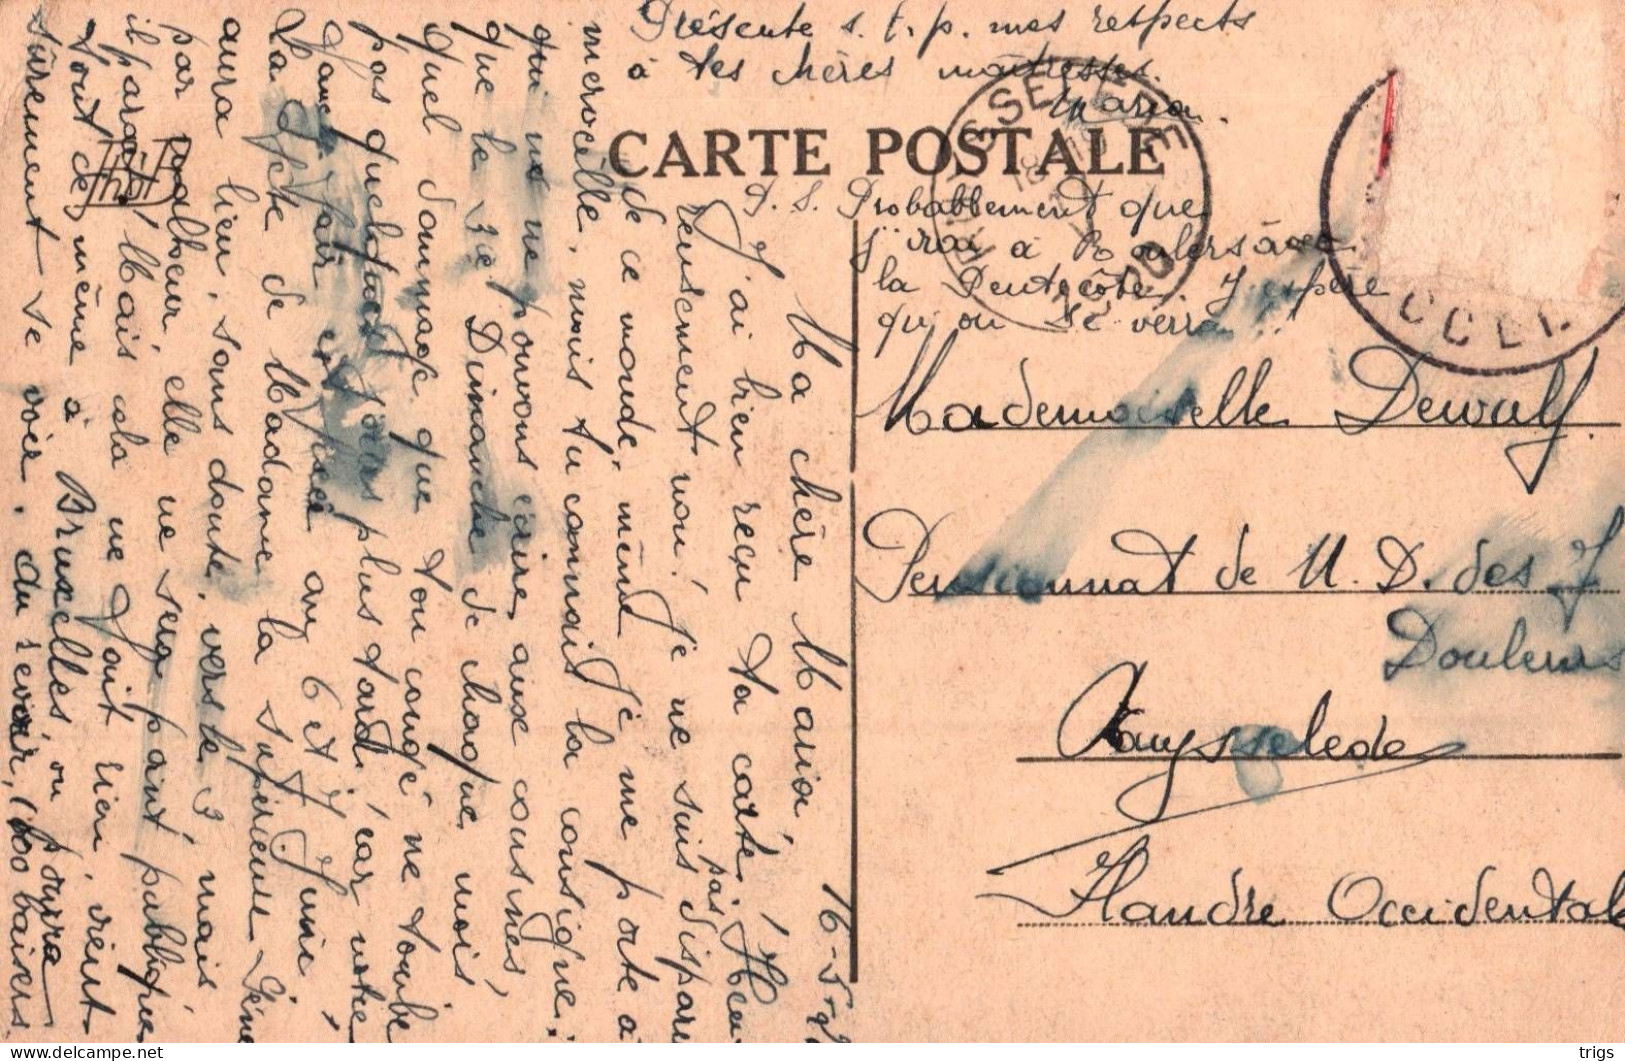 Présente s. t. p. mes respects
à tes chères maîtresses.
Maria.
CARTE POSTALE
P. S. Probablement que
j'irai à Roulers
la Pentecôte. J'espère
qu'on se verra !!
Mademoiselle Dewulf.
Pensionnat de N. D. des 7
Douleurs
Ruysselede
Flandre Occidentale
16-5-
Ma chère Maria,
J'ai bien reçu ta carte ! Heu
reusement, moi ! Je ne suis pas disparu
de ce monde, même je me porte à
merveille, mais tu connais la consigne :
qui ne pouvons écrire, aux cousines,
que le 3e Dimanche de chaque mois
Quel dommage que ton congé ne tombe
pas quelques jours plus tard ! car notre
Fancy-fair est fixée au 6 et 7 Juin !
La fête de Madame la supérieure Géné
aura lieu, sans doute, vers le 3 mais
par malheur, elle ne sera point publique
il paraît ! Mais cela ne fait rien, vient
tout de même à Bruxelles, on pourra
sûrement se voir. Au revoir, 1000 baisers
CCLE.
trigs